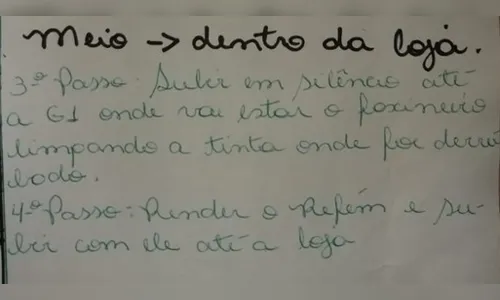 Meio → dentro da loja.
3º Passo: Subir em silêncio até
a G1 onde vai estar o faxineiro
limpando a tinta onde foi derru
bado.
4º Passo: Render o Refém e su-
bir com ele até a loja